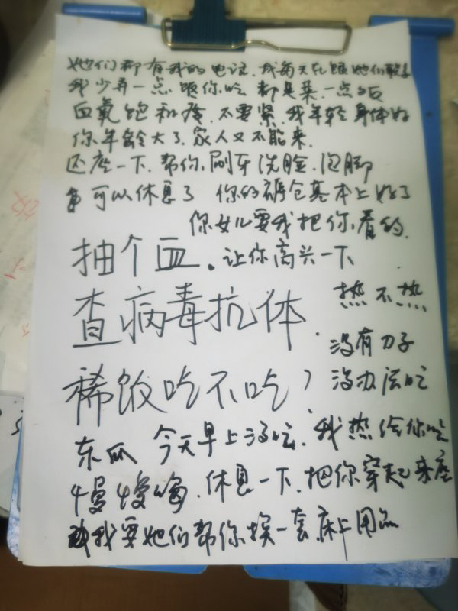 她们都有我的电话.我每天在跟她们联
我少弄一点 跟你吃 都是菜.一点饭
血氧饱和度.不要紧.我年轻身体好
你年龄大了.家人又不能来.
还座一下.帮你.刷牙洗脸.泡脚
可以休息了 你的 基本上好了
你女儿要我把你.看的.
抽个血.让你高兴一下
查病毒抗体.热不热
没有刀子
稀饭吃不吃?没办法吃
东瓜 今天早上没吃.我热给你吃
慢慢 .休息一下.把你穿起来座
我要她们帮你换一套床上用品